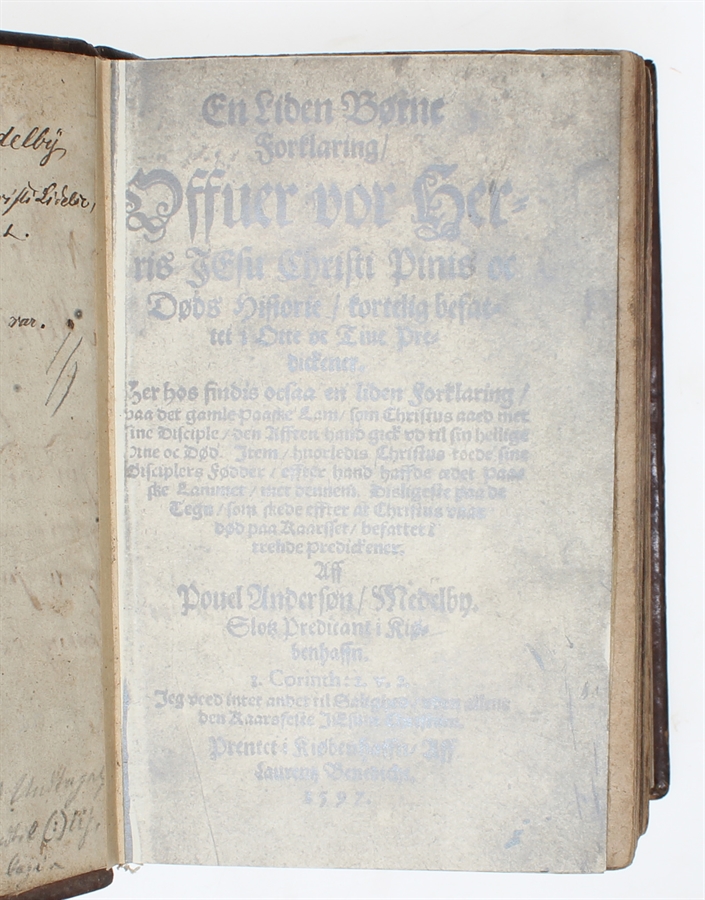 delby
L.
var.
En Liden Børne
Forklaring/
Offuer vor Her-
ris JEsu Christi Pinis oc
Døds Historie / kortelig befat-
tet i Otte oc Tiue Pre-
dickener.
Her hos findis ocsaa en liden Forklaring /
paa det gamle Paaske Lam / som Christus aaed met
sine Disciple / den Afften hand gick vd til sin hellige
Pine oc Død. Item / huorledis Christus toede sine
Disciplers Fødder / effter hand haffde ædet Paa-
ske Lammet / met dennem. Disligeste paa de
Tegn / som skede effter at Christus vaar
død paa Kaarsset / befattet i
trende Predickener.
Aff
Pouel Andersøn / Medelby.
Slotz Predicant i Kiø-
benhaffn.
1. Corinth: 2. v. 2.
Jeg veed intet andet til
den Kaarsfeste JEsum
Prentet i Kiøbenhaffn / Aff
Laurentz Benedicht.
1597.